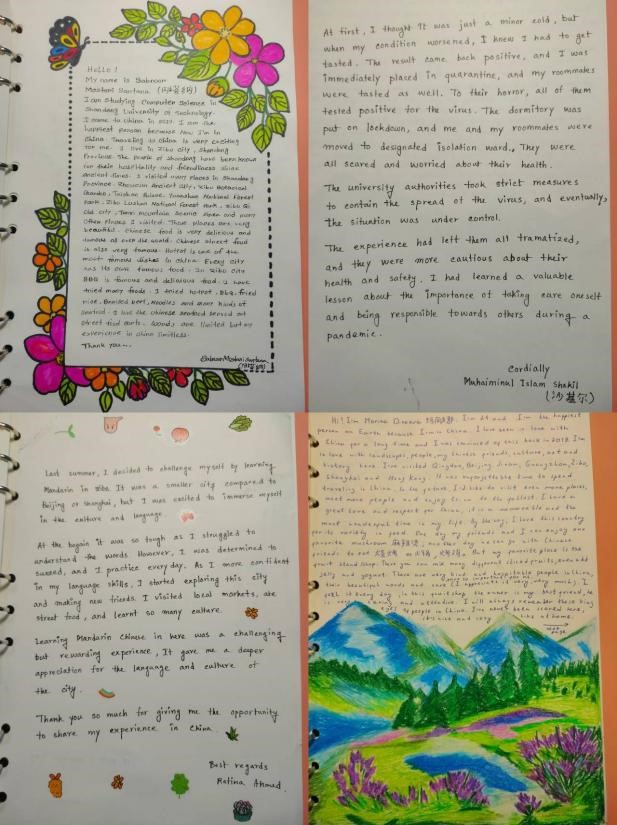 Hello!
My name is Sabnoor
Mostari Santana.
I am studying Computer Science in
Shandong University of Technology.
I came to China in 2019. I am the
happiest person because now I'm in
China. Traveling to China is very exciting
for me. I live in Zibo city, Shandong
Province. The people of Shandong have been known
for their hospitality and friendliness since
ancient times. I visited many places in Shandong
Province. Zhoucun Ancient city, Zibo Botanical
Garden, Taishan National Forest
Park, Zibo Lushan National Forest Park, Zibo Qi
Old city, scenic Area and many
other places I visited. Those places are very
beautiful. Chinese food is very delicious and
famous all over the world. Chinese street food
is also very famous. Hotpot is one of the
most famous dishes in China. Every city
has its own famous food. In Zibo city
BBQ is famous and delicious food. I have
tried many foods. I tried hotpot, BBQ, fried
rice, Braised beef, Noodles and many kinds of
seafood. I like the Chinese seafood served at
street food carts. Words are limited but my
experience in China limitless.
Thank you...
At first, I thought It was just a minor cold, but
when my condition worsened, I knew I had to get
tasted. The result came back positive, and I was
immediately placed in quarantine, and my roommates
were tasted as well. To their horror, all of them
tested positive for the virus. The dormitory was
put on lockdown, and me and my roommates were
moved to designated isolation ward. They were
all scared and worried about their health.
The university authorities took strict measures
to contain the spread of the virus, and eventually,
the situation was under control.
The experience had left them all tramatized,
and they were more cautious about their
health and safety. I had learned a valuable
lesson about the importance of taking care oneself
and being responsible towards others during a
pandemic.
Cordially
Muhaiminul Islam Shakil
(沙基尔)
Last summer, I decided to challenge myself by learning
Mandarin in Zibo. It was a smaller city compared to
Beijing or Shanghai, but I was excited to immerse myself
in the culture and language.
At the begain it was so tough as I struggled to
understand the words. However, I was determined to
succeed, and I practice every day. As I more confident
in my language skills, I started exploring this city
and making new friends. I visited local markets, ate
street food, and learnt so many culture.
Learning Mandarin Chinese in here was a challenging
but rewarding experience, It gave me a deeper
appreciation for the language and culture of
the city.
Thank you so much for giving me the opportunity
to share my experience in China.
Best regards
Ratina Ahmad.
Hi! I'm Marina I'm 21 and I'm the happiest
person on Earth because I'm in China. I have been in love with
China for a long time and I was convinced of this back in 2018. I'm
in love with landscapes, people, my Chinese friends, culture, art and
history here. I've visited Qingdao, Beijing, Jinan, Guangzhou, Zibo,
Shanghai and Hong Kong. It was unforgettable time to spend
traveling in China. In the future, I'd like to visit even more places,
meet more people and enjoy China to the fullest. I have a
great love and respect for China, it is a memorable and the
most wonderful time in my life. By the way, I love this country
for its variety in food. One day my friends and I can enjoy our
favorite mushroom 麻辣烫, another day we can go with Chinese
friends to eat 烧烤 or 火锅, But my favorite place is the
fruit stand shop. There you can mix many different sliced fruits, even add
jelly and yogurt. There are very kind and hospitable people in China,
their beautiful words and care I appreciate very very much. I
feel it every day, in this fruit shop the owner is my best friend, he
is very caring and attentive. I will always remember these kind
eyes of people in China. I've never been scared here,
it's nice and cozy like at home.
next
page